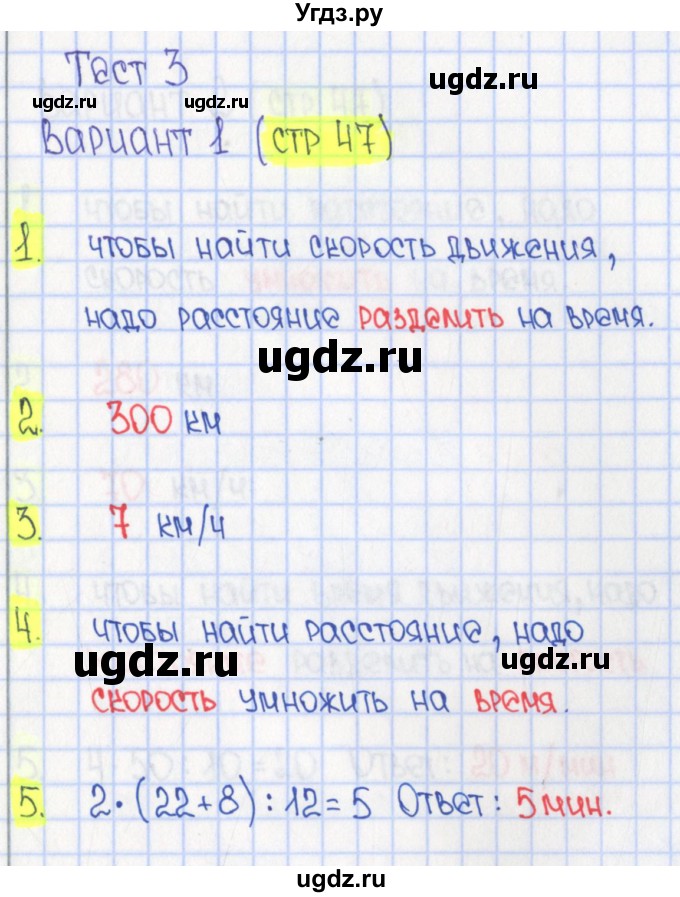 Угдз.ру
Тест 3
ugdz.ru
ugdz.ru ugdz.ru
Вариант 1 (стр 47)
1. чтобы найти скорость движения,
ugdz.ru
надо расстояние разделить на время.
ugdz.ru
2. 300 км
3. 7 км/ч
4. чтобы найти расстояние, надо
ugdz.ru ugdz.ru
скорость умножить на время.
5. 2·(22+8):12=5 Ответ: 5 мин.
ugdz.ru
ugdz.ru